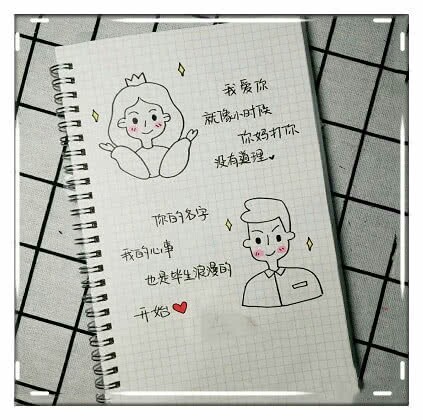 我爱你
就像小时候
你妈打你
没有道理
你的名字
我的心事
也是毕生浪漫的
开始